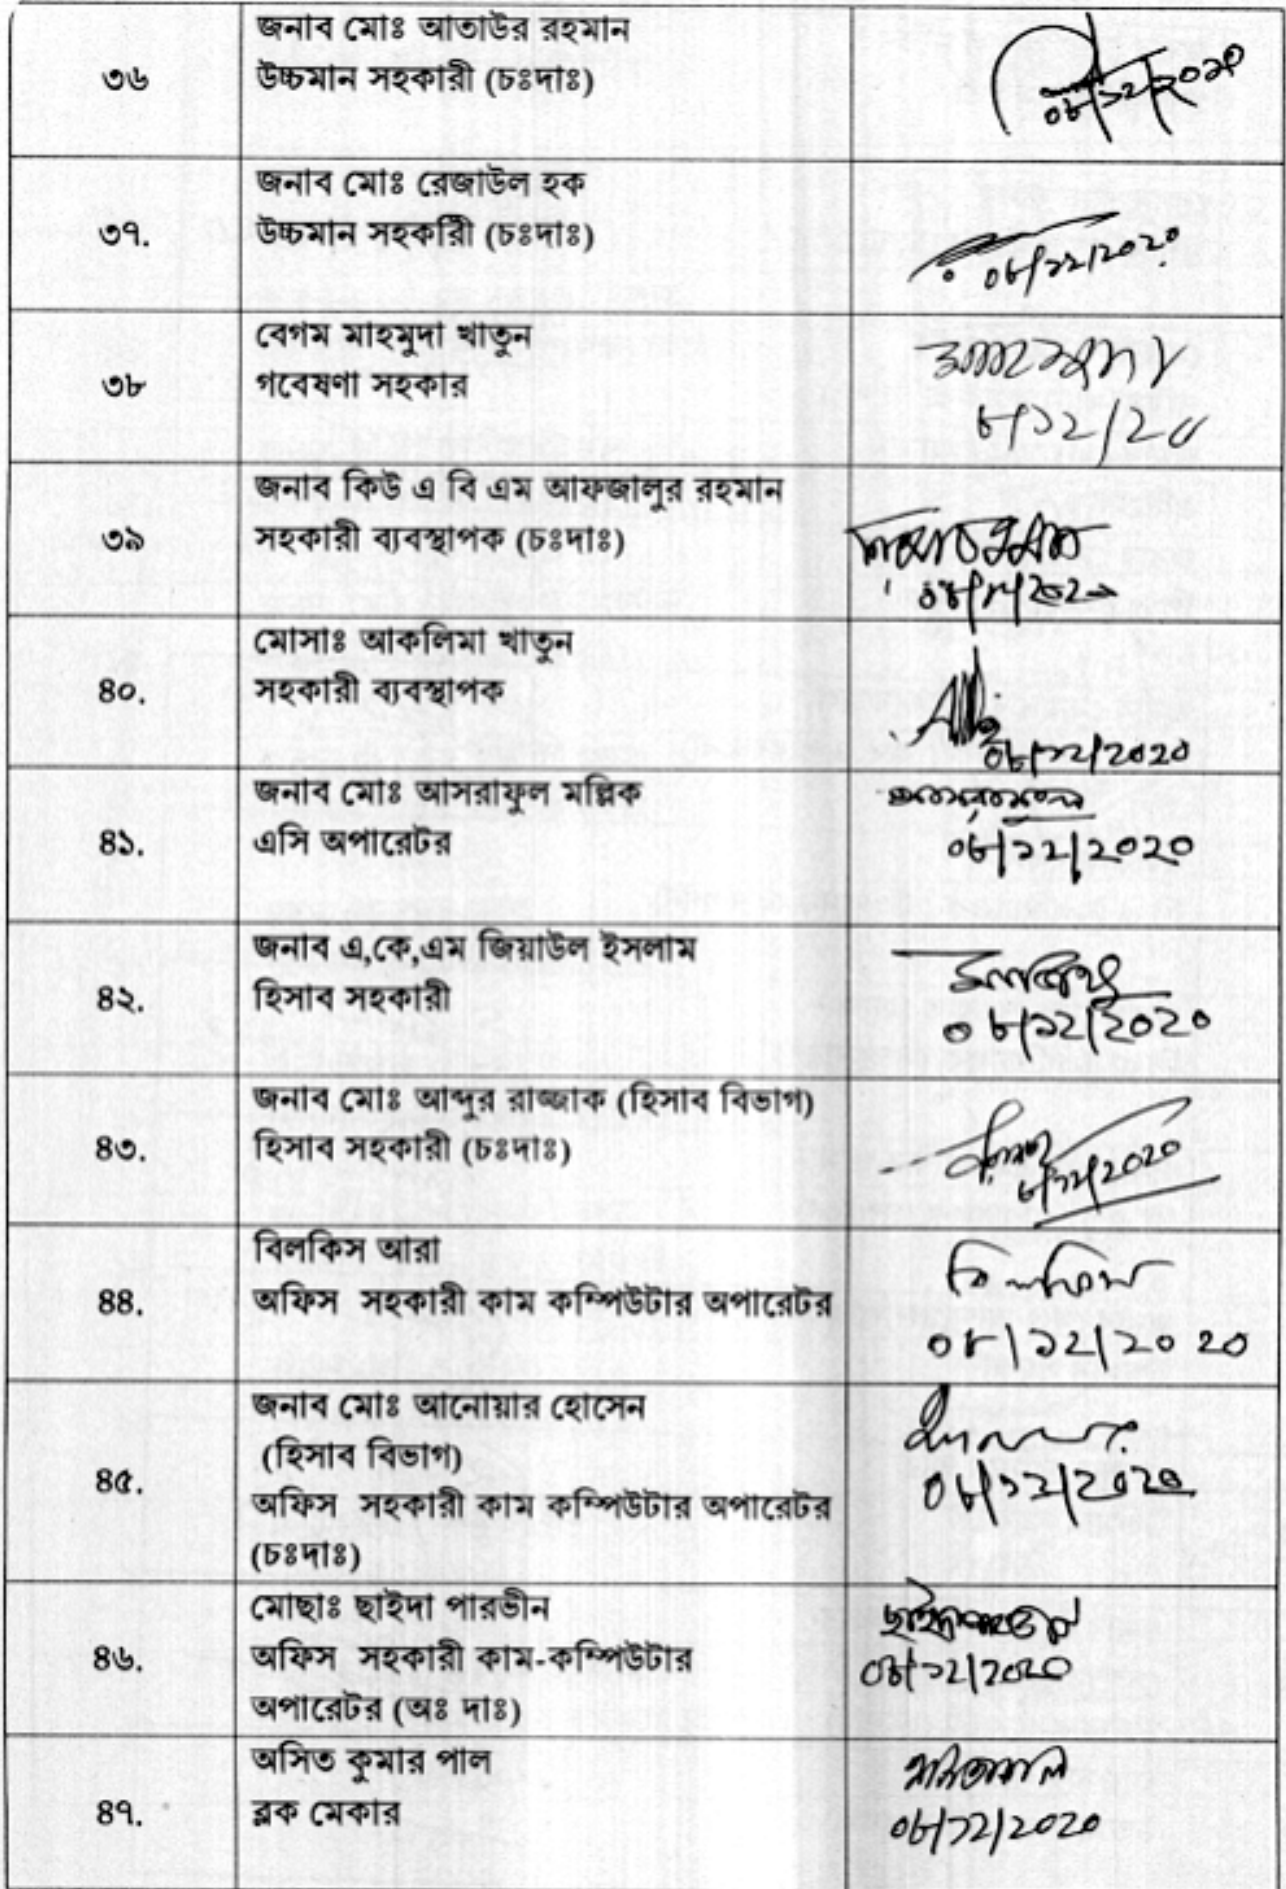 ৩৬
জনাব মোঃ আতাউর রহমান
উচ্চমান সহকারী (চঃদাঃ)
০৮/১২/২০২০
৩৭.
জনাব মোঃ রেজাউল হক
উচ্চমান সহকরিী (চঃদাঃ)
০৮/১২/২০২০
৩৮
বেগম মাহমুদা খাতুন
গবেষণা সহকার
মাহমুদা
৮/১২/২০
৩৯
জনাব কিউ এ বি এম আফজালুর রহমান
সহকারী ব্যবস্থাপক (চঃদাঃ)
৪০.
মোসাঃ আকলিমা খাতুন
সহকারী ব্যবস্থাপক
০৮/১২/২০২০
৪১.
জনাব মোঃ আসরাফুল মল্লিক
এসি অপারেটর
০৮/১২/২০২০
৪২.
জনাব এ,কে,এম জিয়াউল ইসলাম
হিসাব সহকারী
০৮/১২/২০২০
৪৩.
জনাব মোঃ আব্দুর রাজ্জাক (হিসাব বিভাগ)
হিসাব সহকারী (চঃদাঃ)
৮/১২/২০২০
৪৪.
বিলকিস আরা
অফিস সহকারী কাম কম্পিউটার অপারেটর
বিলকিস
০৮/১২/২০২০
৪৫.
জনাব মোঃ আনোয়ার হোসেন
(হিসাব বিভাগ)
অফিস সহকারী কাম কম্পিউটার অপারেটর
(চঃদাঃ)
০৮/১২/২০২০
৪৬.
মোছাঃ ছাইদা পারভীন
অফিস সহকারী কাম-কম্পিউটার
অপারেটর (অঃ দাঃ)
০৮/১২/২০২০
৪৭.
অসিত কুমার পাল
ব্লক মেকার
০৮/১২/২০২০